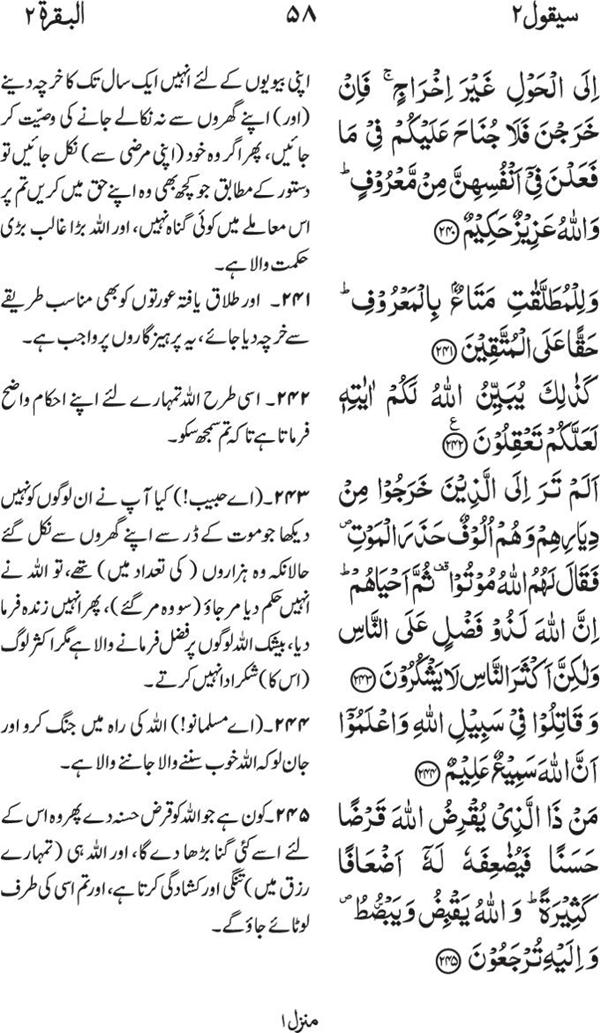 سیقول ۲
۵۸
البقرة ۲
اِلَى الْحَوْلِ غَیْرَ اِخْرَاجٍ ۚ فَاِنْ
خَرَجْنَ فَلَا جُنَاحَ عَلَیْكُمْ فِیْ مَا
فَعَلْنَ فِیْۤ اَنْفُسِهِنَّ مِنْ مَّعْرُوْفٍ ؕ
وَ اللّٰهُ عَزِیْزٌ حَكِیْمٌ ﴿۲۴۰﴾
وَ لِلْمُطَلَّقٰتِ مَتَاعٌۢ بِالْمَعْرُوْفِ ؕ
حَقًّا عَلَى الْمُتَّقِیْنَ ﴿۲۴۱﴾
كَذٰلِكَ یُبَیِّنُ اللّٰهُ لَكُمْ اٰیٰتِهٖ
لَعَلَّكُمْ تَعْقِلُوْنَ ﴿۲۴۲﴾ ع
اَلَمْ تَرَ اِلَى الَّذِیْنَ خَرَجُوْا مِنْ
دِیَارِهِمْ وَ هُمْ اُلُوْفٌ حَذَرَ الْمَوْتِ ۪
فَقَالَ لَهُمُ اللّٰهُ مُوْتُوْا ۫ ثُمَّ اَحْیَاهُمْ ؕ
اِنَّ اللّٰهَ لَذُوْ فَضْلٍ عَلَى النَّاسِ
وَ لٰكِنَّ اَكْثَرَ النَّاسِ لَا یَشْكُرُوْنَ ﴿۲۴۳﴾
وَ قَاتِلُوْا فِیْ سَبِیْلِ اللّٰهِ وَ اعْلَمُوْۤا
اَنَّ اللّٰهَ سَمِیْعٌ عَلِیْمٌ ﴿۲۴۴﴾
مَنْ ذَا الَّذِیْ یُقْرِضُ اللّٰهَ قَرْضًا
حَسَنًا فَیُضٰعِفَهٗ لَهٗۤ اَضْعَافًا
كَثِیْرَةً ؕ وَ اللّٰهُ یَقْبِضُ وَ یَبْصُۜطُ ۪
وَ اِلَیْهِ تُرْجَعُوْنَ ﴿۲۴۵﴾
اپنی بیویوں کے لئے انہیں ایک سال تک کا خرچہ دینے
(اور) اپنے گھروں سے نہ نکالے جانے کی وصیّت کر
جائیں، پھر اگر وہ خود (اپنی مرضی سے) نکل جائیں تو
دستور کے مطابق جو کچھ بھی وہ اپنے حق میں کریں تم پر
اس معاملے میں کوئی گناہ نہیں، اور اللہ بڑا غالب بڑی
حکمت والا ہے۔
۲۴۱۔ اور طلاق یافتہ عورتوں کو بھی مناسب طریقے
سے خرچہ دیا جائے، یہ پرہیزگاروں پر واجب ہے۔
۲۴۲۔ اسی طرح اللہ تمہارے لئے اپنے احکام واضح
فرماتا ہے تاکہ تم سمجھ سکو۔
۲۴۳۔(اے حبیب!) کیا آپ نے ان لوگوں کو نہیں
دیکھا جو موت کے ڈر سے اپنے گھروں سے نکل گئے
حالانکہ وہ ہزاروں (کی تعداد میں) تھے، تو اللہ نے
انہیں حکم دیا مر جاؤ (سو وہ مر گئے)، پھر انہیں زندہ فرما
دیا، بیشک اللہ لوگوں پر فضل فرمانے والا ہے مگر اکثر لوگ
(اس کا) شکر ادا نہیں کرتے۔
۲۴۴۔(اے مسلمانو!) اللہ کی راہ میں جنگ کرو اور
جان لو کہ اللہ خوب سننے والا جاننے والا ہے۔
۲۴۵۔کون ہے جو اللہ کو قرض حسنہ دے پھر وہ اس کے
لئے اسے کئی گنا بڑھا دے گا، اور اللہ ہی (تمہارے
رزق میں) تنگی اور کشادگی کرتا ہے، اور تم اسی کی طرف
لوٹائے جاؤ گے۔
منزل ۱